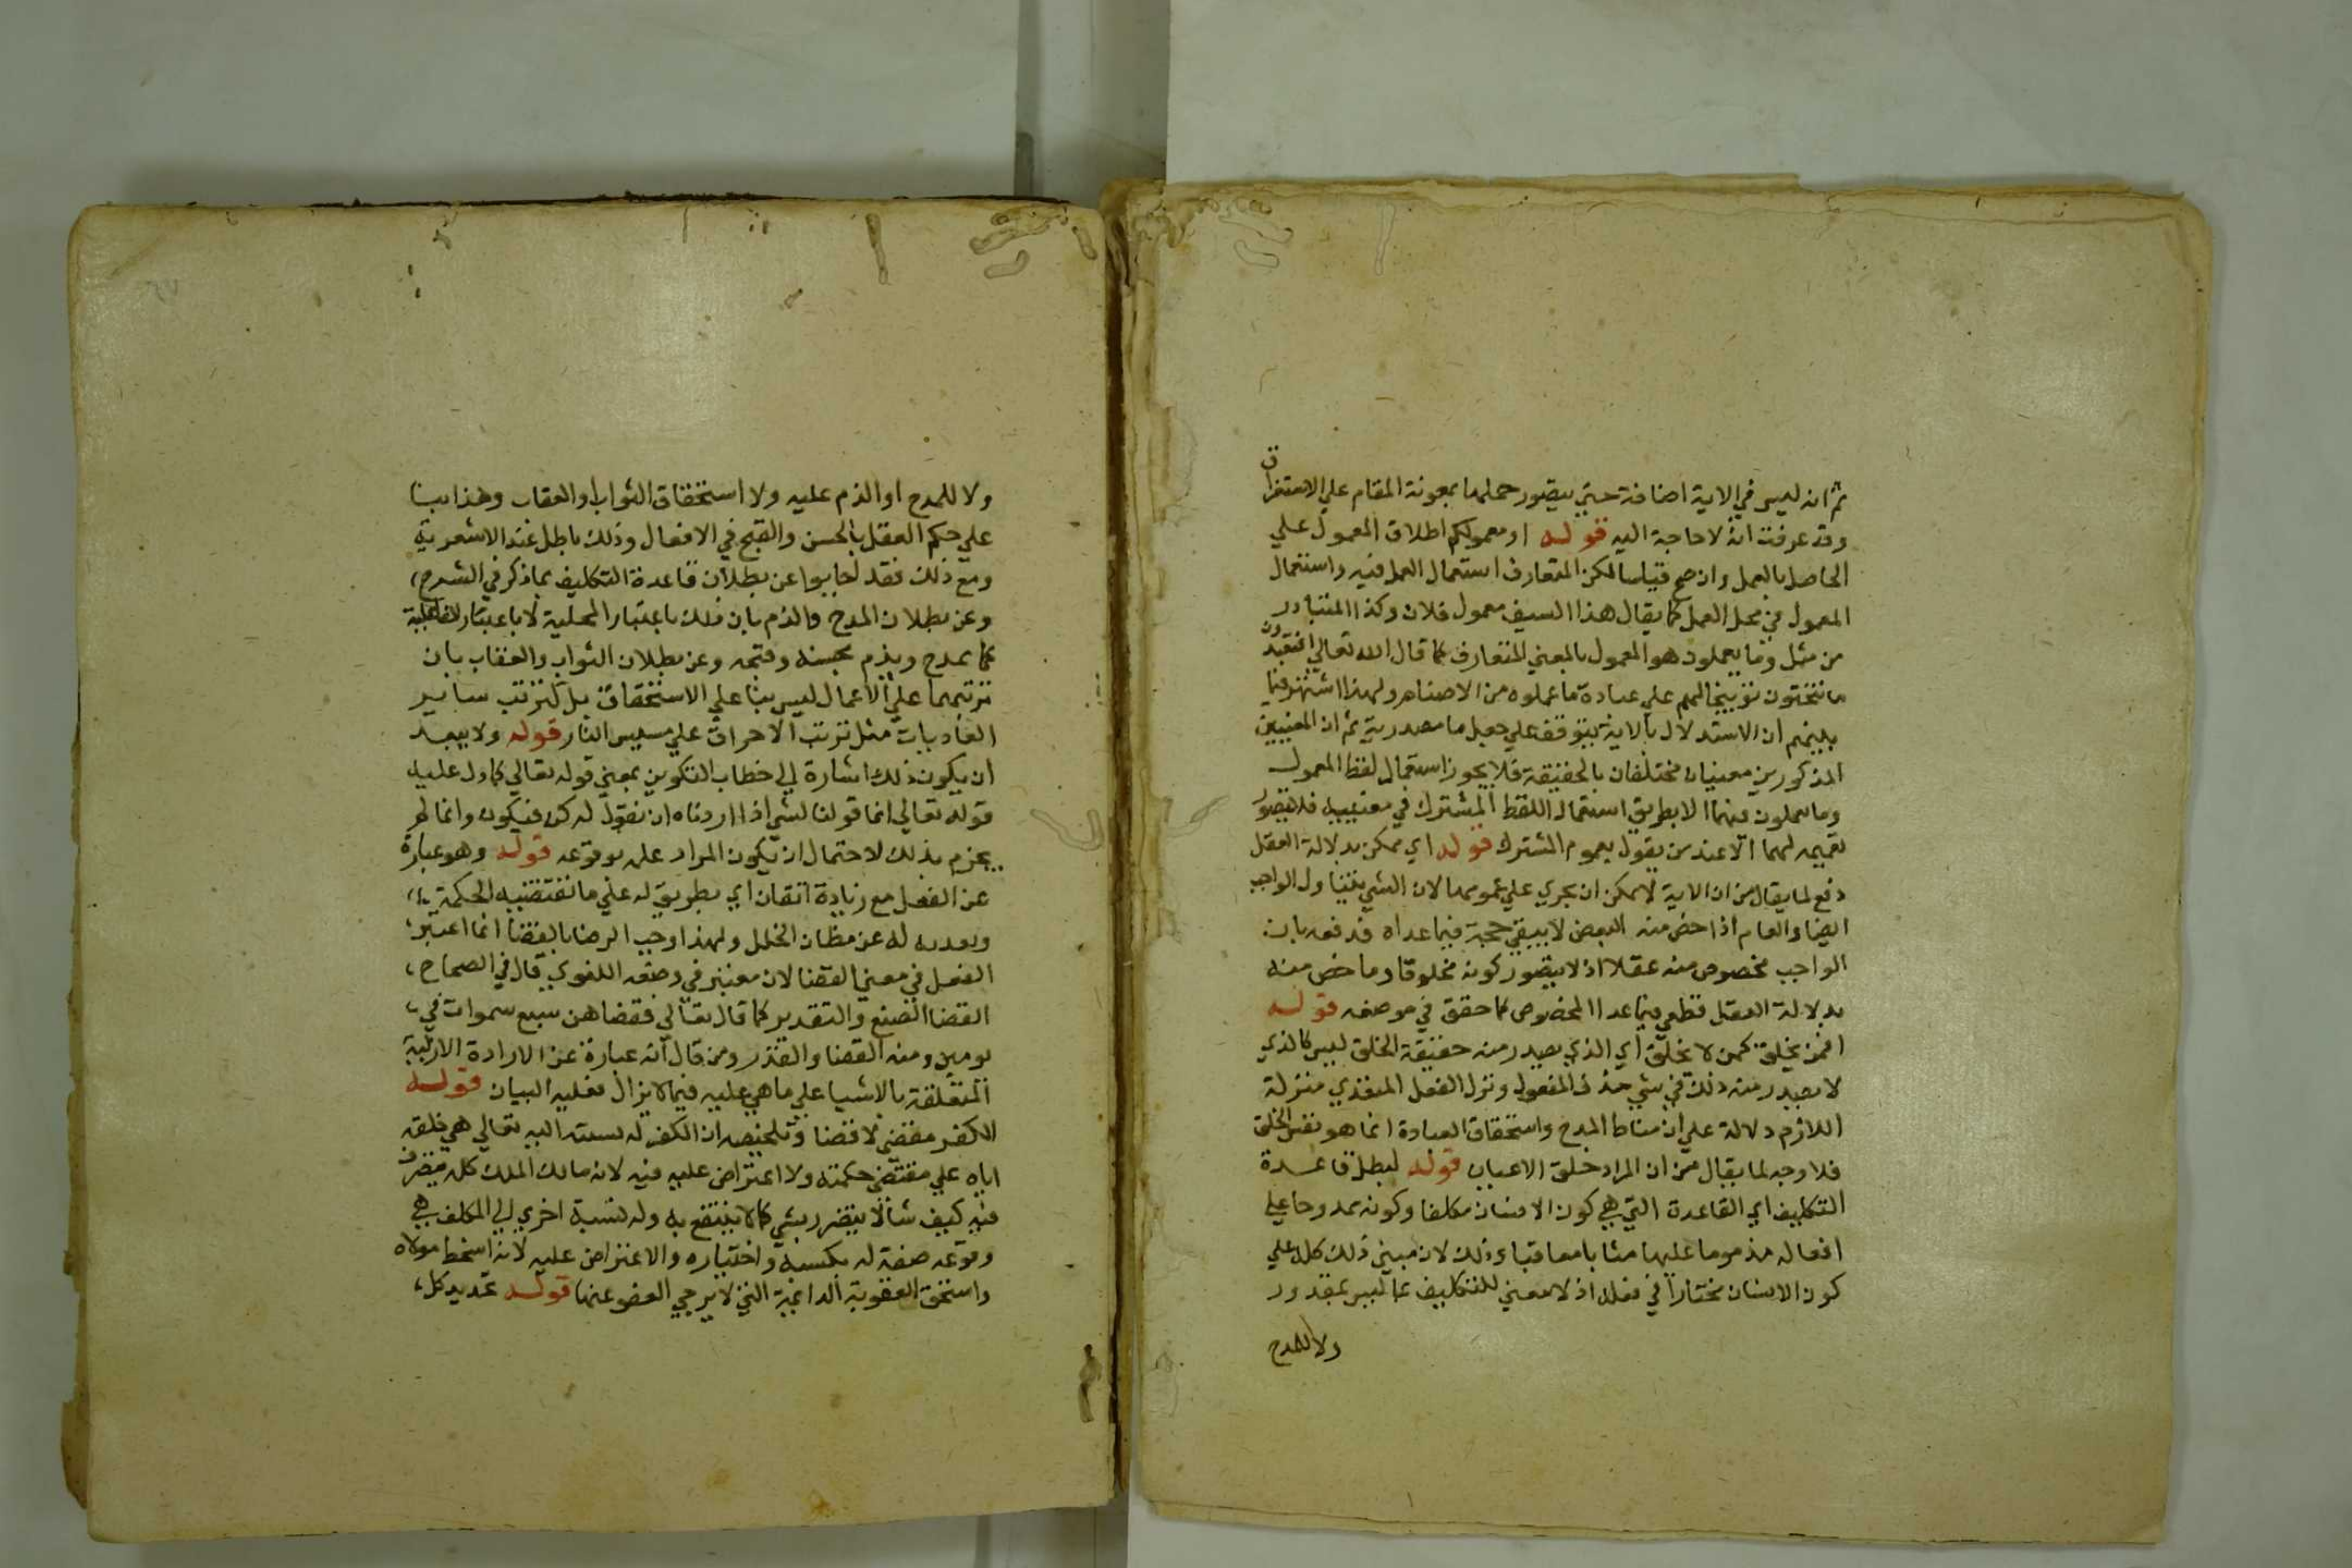 ثم انه ليس في الاية اضافة حتي يتصور حملها بمعونة المقام علي الاستغراق
وقد عرفت انه لا حاجة اليه قوله او معمولكم اطلاق المعمول علي
الحاصل بالعمل وان صح قياسا لكن المتعارف استعمال العمل فيه واستعمال
المعمول في محل العمل كما يقال هذا السيف معمول فلان وكذا المتبادر
من مثل وما يعملون هو المعمول بالمعني المتعارف كما قال الله تعالي اتعبدون
ما تنحتون توبيخا لهم علي عبادة ما عملوه من الاصنام ولهذا اشتهر فيما
بينهم ان الاستدلال بالاية يتوقف علي جعل ما مصدرية ثم ان المعنيين
المذكورين معنيان مختلفان بالحقيقة فلا يجوز استعمال لفظ المعمول
وما يعملون فيهما الا بطريق استعمال اللفظ المشترك في معنييه فلا يتصور
تعميمه لهما الا عند من يقول بعموم المشترك قوله اي ممكن بدلالة العقل
دفع لما يقال من ان الاية لا يمكن ان يجري علي عمومها لان الشي يتناول الواجب
ايضا والعام اذا خص منه البعض لا يبقي حجة فيما عداه فدفعه بان
الواجب مخصوص منه عقلا اذ لا يتصور كونه مخلوقا وما خص منه
بدلالة العقل قطعي فيما عدا المخصوص كما حقق في موضعه قوله
افمن يخلق كمن لا يخلق اي الذي يصدر منه حقيقة الخلق ليس كالذي
لا يصدر منه ذلك في شي حذف المفعول ونزل الفعل المتعدي منزلة
اللازم دلالة علي ان مناط المدح واستحقاق العبادة انما هو نفس الخلق
فلا وجه لما يقال من ان المراد خلق الاعيان قوله لبطل قاعدة
التكليف اي القاعدة التي هي كون الانسان مكلفا وكونه ممدوحا علي
افعاله مذموما عليها مثابا معاقبا وذلك لان مبني ذلك كله علي
كون الانسان مختارا في فعله اذ لا معني للتكليف بما ليس بمقدور
ولا للمدح
ولا للمدح او الذم عليه ولا استحقاق الثواب او العقاب وهذا بنا
علي حكم العقل بالحسن والقبح في الافعال وذلك باطل عند الاشعرية
ومع ذلك فقد اجابوا عن بطلان قاعدة التكليف بما ذكر في الشرح
وعن بطلان المدح والذم بان ذلك باعتبار المحلية لا باعتبار الفاعلية
كما يمدح ويذم بحسنه وقبحه وعن بطلان الثواب والعقاب بان
ترتبهما علي الاعمال ليس بنا علي الاستحقاق بل كترتب ساير
العاديات مثل ترتب الاحراق علي مسيس النار قوله ولا يبعد
ان يكون ذلك اشارة الي خطاب التكوين بمعني قوله تعالي كما دل عليه
قوله تعالي انما قولنا لشي اذا اردناه ان نقول له كن فيكون وانما لم
يجزم بذلك لاحتمال ان يكون المراد علمه بوقوعه قوله وهو عبارة
عن الفعل مع زيادة اتقان اي بطريق له علي ما تقتضيه الحكمة
وبعد به له عن مظان الخلل ولهذا وجب الرضا بالقضا انما اعتبر
الفعل في معني القضا لان معتبر في وضعه اللغوي قال في الصحاح
القضا الصنع والتقدير كما قال تعالي فقضاهن سبع سموات في
يومين ومنه القضا والقدر ومن قال انه عبارة عن الارادة الازلية
المتعلقة بالاشيا علي ما هي عليه فيما لا يزال فعليه البيان قوله
الكفر مقضي لا قضا وتلخيصه ان الكفر له نسبته اليه تعالي هي خلقه
اياه علي مقتضي حكمته ولا اعتراض عليه فيه لانه مالك الملك كله يتصرف
فيه كيف شا لا يتضرر بشي كما لا ينتفع به وله نسبة اخري الي المكلف هي
وقوعه صفة له بكسبه واختياره والاعتراض عليه لانه اسخط مولاه
واستحق العقوبة الداعية التي لا يرجي العفو عنها قوله تحديد كل